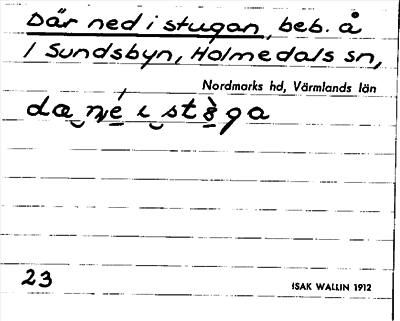 Där ned i stugan, beb. å
1 Sundsbyn, Holmedals sn,
Nordmarks hd, Värmlands län
23
ISAK WALLIN 1912